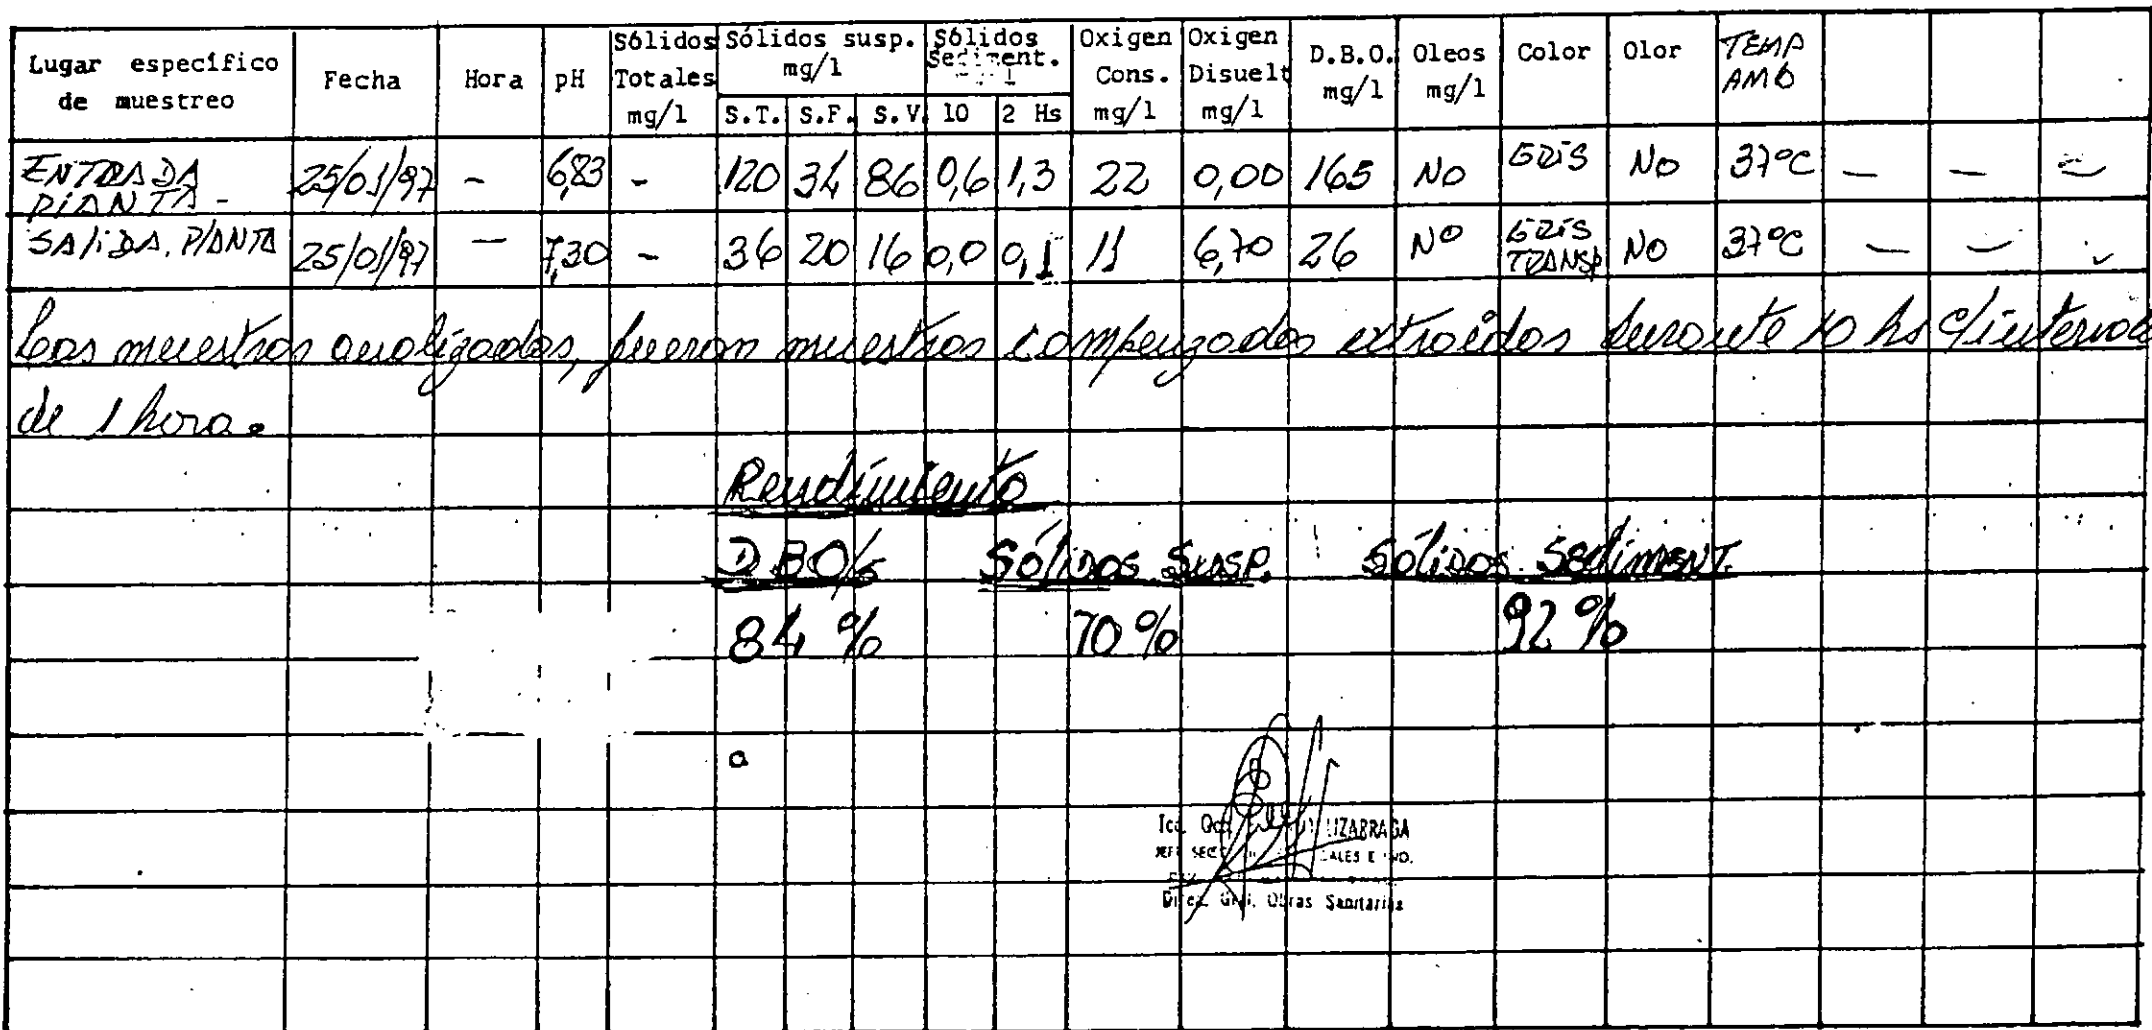 Lugar específico de muestreo | Fecha | Hora | pH | Sólidos Totales mg/l | Sólidos susp. mg/l S.T. S.F. S.V. | Sólidos Sediment. 10 2 Hs | Oxigen Cons. mg/l | Oxigen Disuelt mg/l | D.B.O. mg/l | Oleos mg/l | Color | Olor | TEMP AMB
ENTRADA PLANTA - | 25/01/97 | - | 6,83 | - | 120 | 34 | 86 | 0,6 | 1,3 | 22 | 0,00 | 165 | NO | GRIS | NO | 37°C | - | - | -
SALIDA PLANTA | 25/01/97 | - | 7,30 | - | 36 | 20 | 16 | 0,0 | 0,1 | 11 | 6,70 | 26 | NO | GRIS TRANSP | NO | 37°C | - | - | -
Las muestras analizadas, fueron muestras compenzadas extraídas durante 10 hs c/intervalo
de 1 hora.
Rendimiento
DBO/5 Sólidos Susp. Sólidos Sediment.
84 % 70 % 92 %
LIZARRAGA
Obras Sanitarias